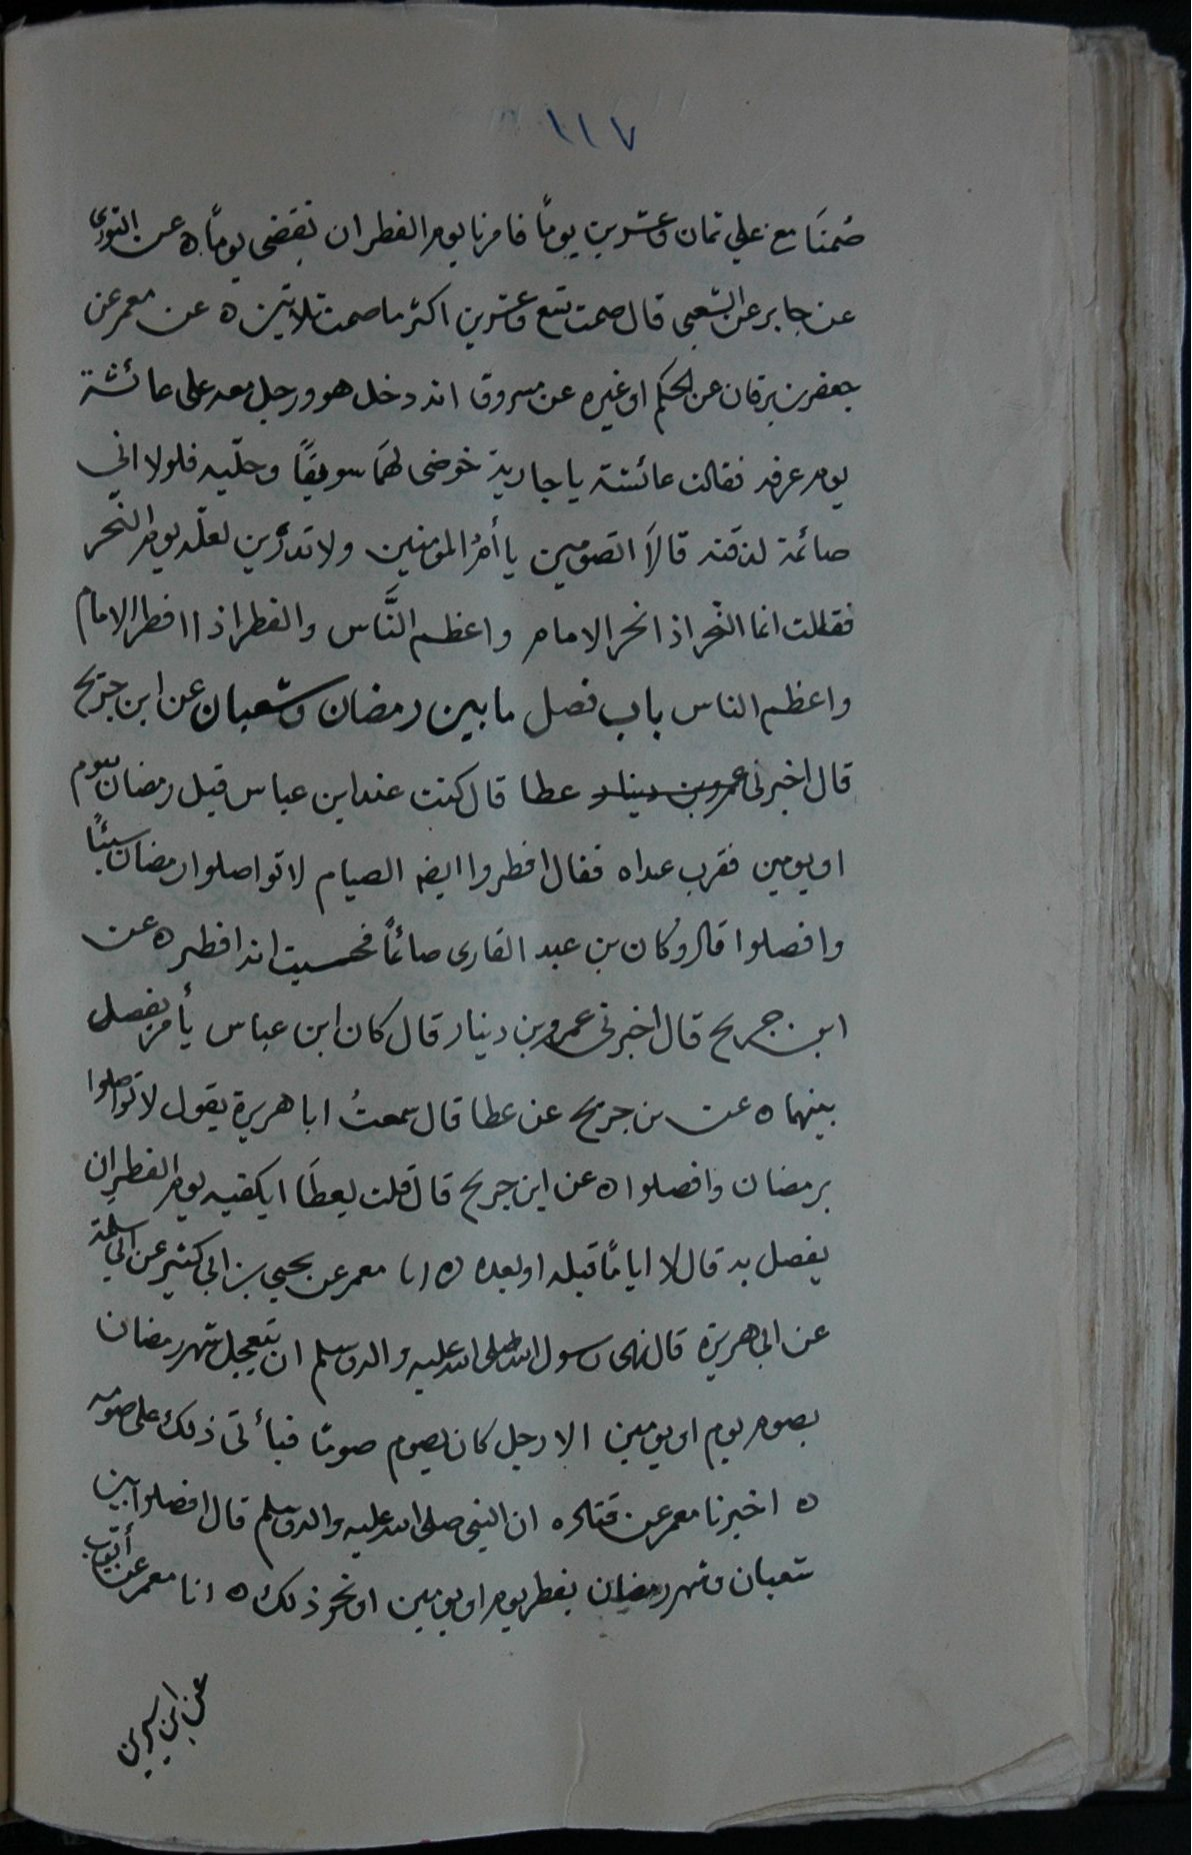 ١١٧
صُمنَا مع علي ثمان وعشرين يومًا فامرنا يوم الفطر ان نقضى يومًا ه عن الثورى
عن جابر عن الشعبى قال صمت تسع وعشرين اكثر ما صمت ثلاثين ه عن معمر عن
جعفر بن برقان عن الحكم او غيره عن مسروق انه دخل هو ورجل معه على عائشة
يوم عرفه فقالت عائشة يا جارية خوضى لهَما سويقًا وحلّيه فلولا انى
صائمة لذقته قالَا اتصومين يا أمُ المومنين ولا تدرين لعلّه يوم النحر
فقالت انما النّحر اذ انحر الامام واعظم النَّاس والفطر اذ ا افطر الامام
واعظم الناس باب فصل ما بين رمضان وشعبان عن ابن جريح
قال اخبرنى عمرو بن دينار عطا قال كنت عند ابن عباس قبل رمضان بيوم
او يومين فقرب غداه فقال افطروا ايضه الصيام لا تواصلوا رمضان شيئًا
وافصلوا قال وكان بن عبد القارى صائمًا فحسبت انه افطر ه عن
ابن جريح قال اخبرنى عمرو بن دينار قال كان ابن عباس يأمر بفصل
بينهما ه عن بن جريح عن عطا قال سمعتُ ابا هريرة يقول لا تواصلوا
برمضان وافصلوا ه عن ابن جريح قال قلت لعطَا ايكفيه يوم الفطر ان
يفصل به قال لا ايامًا قبله او بعده ه انا معمر عن يحيى بن ابى كثير عن ابى سلمة
عن ابى هريرة قال نهى رسول الله صلى الله عليه واله وسلم ان يتعجل شهر رمضان
بصوم يوم او يومين الا رجل كان يصوم صومًا فيأتى ذلك على صومه
ه اخبرنا معمر عن قتاده ان النبى صلى الله عليه واله وسلم قال افصلوا بين
شعبان وشهر رمضان بفطر يوم او يومين او نحو ذلك ه انا معمر عن أيّوب
عن ابن سيرين